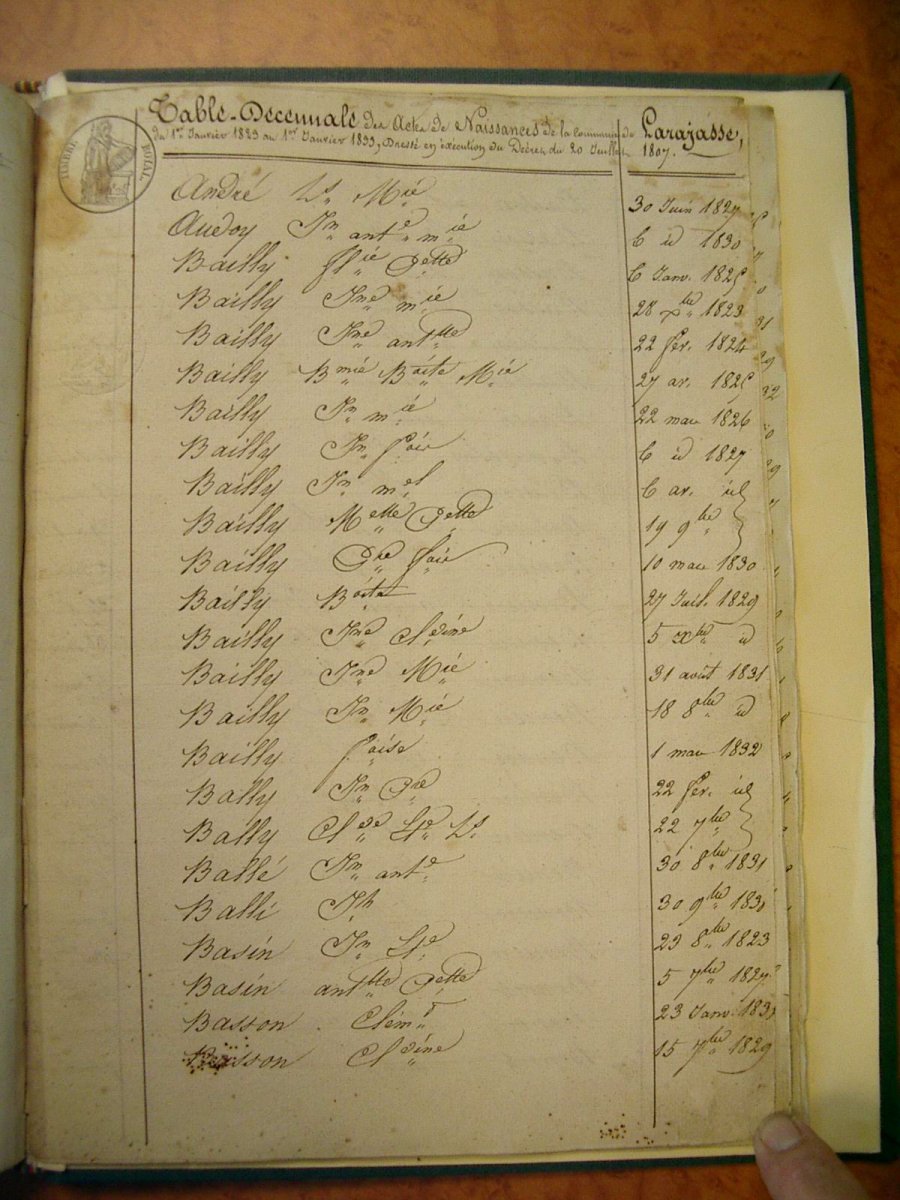 TIMBRE ROYAL.
Table-Décennale des Actes de Naissances de la Commune de Larajasse,
du 1er Janvier 1823 au 1er Janvier 1833, Dressé en exécution du Décret du 20 Juillet 1807.
André Ls Mie 30 Juin 1827
Audoy Jn ante mie 6 id 1830
Bailly flie Pette 6 Janv. 1825
Bailly Jne mie 28 xbre 1823
Bailly Jne anttte 22 fév. 1824
Bailly Bmie Boîte Mie 27 av. 1825
Bailly Jn mie 22 mau 1826
Bailly Jn foie 6 id 1827
Bailly Jn mel 6 av. id
Bailly Mette Pette 19 9bre
Bailly Pre foie 10 mau 1830
Bailly Boîte 27 Juil. 1829
Bailly Jne Cldine 5 xbre id
Bailly Jne Mie 31 août 1831
Bailly Jn Mie 18 8bre id
Bailly foise 1 mau 1832
Bally Jn Pre 22 fév. id
Bally Clde Ste Ls 22 7bre
Ballé Jn ante 30 8bre 1831
Balli Jh 30 9bre 1830
Basin Jn Ste 23 8bre 1823
Basin anttte Pette 5 7bre 1827
Basson Clémt 23 Janv 183
Basson Cldine 15 7bre 1829